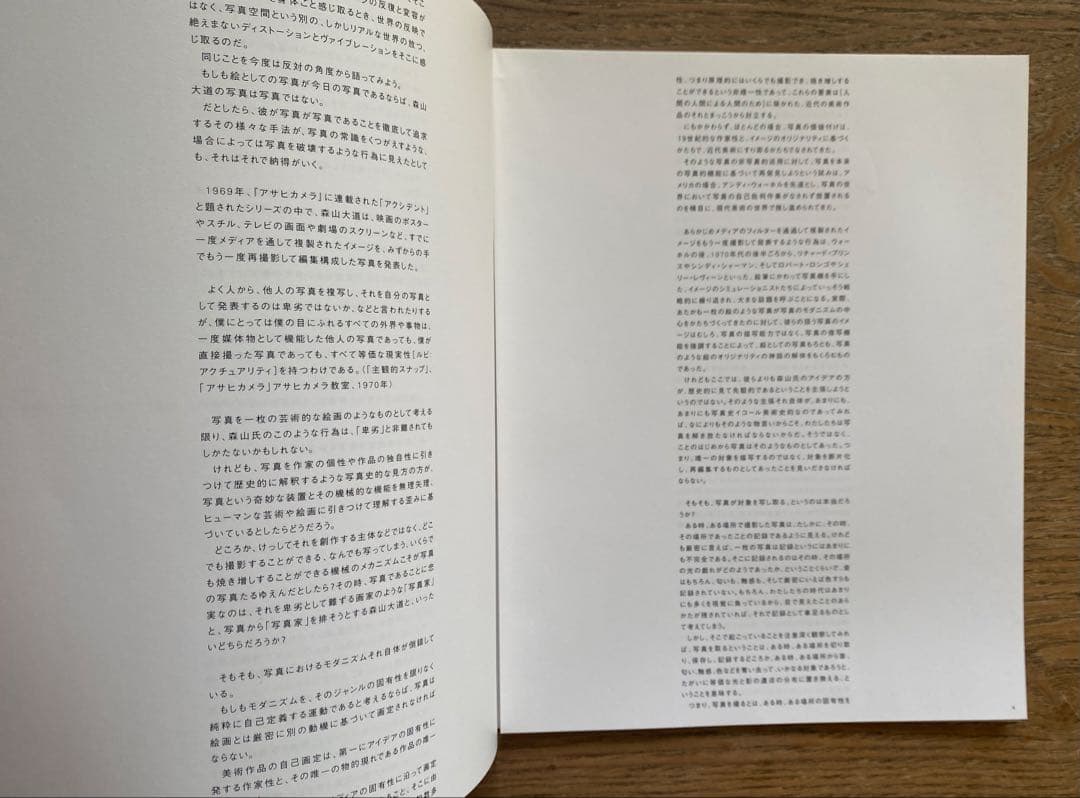 の反復と変容が
ごと感じ取るとき、世界の反映で
はなく、写真空間という別の、しかしリアルな世界の放つ、
絶えまないディストーションとヴァイブレーションをそこに感
じ取るのだ。
同じことを今度は反対の角度から語ってみよう。
もしも絵としての写真が今日の写真であるならば、森山
大道の写真は写真ではない。
だとしたら、彼が写真が写真であることを徹底して追求
するその様々な手法が、写真の常識をくつがえすような、
場合によっては写真を破壊するような行為に見えたとして
も、それはそれで納得がいく。
1969年、「アサヒカメラ」に連載された「アクシデント」
と題されたシリーズの中で、森山大道は、映画のポスター
やスチル、テレビの画面や劇場のスクリーンなど、すでに
一度メディアを通して複製されたイメージを、みずからの手
でもう一度再撮影して編集構成した写真を発表した。
よく人から、他人の写真を複写し、それを自分の写真と
して発表するのは卑劣ではないか、などと言われたりする
が、僕にとっては僕の目にふれるすべての外界や事物は、
一度媒体物として機能した他人の写真であっても、僕が
直接撮った写真であっても、すべて等価な現実性[ルビ:
アクチュアリティ]を持つわけである。(「主観的スナップ」、
「アサヒカメラ」アサヒカメラ教室、1970年)
写真を一枚の芸術的な絵画のようなものとして考える
限り、森山氏のこのような行為は、「卑劣」と非難されても
しかたないかもしれない。
けれども、写真を作家の個性や作品の独自性に引き
つけて歴史的に解釈するような写真史的な見方の方が、
写真という奇妙な装置とその機械的な機能を無理矢理、
ヒューマンな芸術や絵画に引きつけて理解する歪みに基
づいているとしたらどうだろう。
どころか、けっしてそれを創作する主体などではなく、どこ
でも撮影することができる、なんでも写ってしまう、いくらで
も焼き増しすることができる機械のメカニズムこそが写真
の写真たるゆえんだとしたら?その時、写真であることに忠
実なのは、それを卑劣として難ずる画家のような「写真家」
と、写真から「写真家」を排そうとする森山大道と、いった
いどちらだろうか?
そもそも、写真におけるモダニズムそれ自体が倒錯して
いる。
もしもモダニズムを、そのジャンルの固有性を限りなく
純粋に自己定義する運動であると考えるならば、写真は
絵画とは厳密に別の動機に基づいて画定されなければ
ならない。
美術作品の自己画定は、第一にアイデアの固有性に
発する作家性と、その唯一の物的現れである作品の唯一
ディアの固有性に沿って画定
あること、そこに由
性、つまり原理的にはいくらでも撮影でき、焼き増しする
ことができるという非唯一性であって、これらの要素は[人
間の人間による人間のため]に築かれた、近代の美術作
品のそれとまっこうから対立する。
にもかかわらず、ほとんどの場合、写真の価値付けは、
19世紀的な作家性と、イメージのオリジナリティに基づく
かたちで、近代美術にすり寄るかたちでなされてきた。
そのような写真の非写真的活用に対して、写真を本来
の写真的機能に基づいて再発見しようという試みは、ア
メリカの場合、アンディ・ウォーホルを先達とし、写真の世
界において写真の自己批判作業がなされず放置される
のを横目に、現代美術の世界で推し進められてきた。
あらかじめメディアのフィルターを通過して複製されたイ
メージをもう一度撮影して発表するような行為は、ウォー
ホルの後、1970年代の後半ごろから、リチャード・プリン
スやシンディ・シャーマン、そしてロバート・ロンゴやシェ
リー・レヴィーンといった、絵筆にかわって写真機を手にし
た、イメージのシミュレーショニストたちによっていっそう戦
略的に繰り返され、大きな話題を呼ぶことになる。実際、
あたかも一枚の絵のような写真が写真のモダニズムの中
心をかたちづくってきたのに対して、彼らの扱う写真のイメ
ージはむしろ、写真の描写能力ではなく、写真の複写機
能を強調することによって、絵としての写真もろとも、写真
のような絵のオリジナリティの神話の解体をもくろむもので
あった。
けれどもここでは、彼らよりも森山氏のアイデアの方
が、歴史的に見て先駆的であるということを主張しようと
いうのではない。そのような主張それ自体が、あまりにも、
あまりにも写真史イコール美術史的なのであってみれ
ば、なによりもそのような物言いからこそ、わたしたちは写
真を解き放たなければならないからだ。そうではなく、
ことのはじめから写真はそのようなものとしてあった。つ
まり、唯一の対象を描写するのではなく、対象を断片化
し、再編集するものとしてあったことを見いださなければ
ならない。
そもそも、写真が対象を写し取る、というのは本当だろ
うか?
ある時、ある場所で撮影した写真は、たしかに、その時、
その場所であったことの記録であるように見える。けれど
も厳密に言えば、一枚の写真は記録というにはあまりに
も不完全である。そこに記録されるのはその時、その場所
の光の戯れがどのようであったか、ということくらいで、音
はもちろん、匂いも、触感も、そして厳密にいえば色すらも
記録されていない。もちろん、わたしたちの時代はあまり
にも多くを視覚に負っているから、目で見えたことのあら
かたが残されていれば、それで記録として事足るものとし
て考えてしまう。
しかし、そこで起こっていることを注意深く観察してみれ
ば、写真を取るということは、ある時、ある場所を切り取
り、保存し、記録するどころか、ある時、ある場所から音、
匂い、触感、色などを奪い去って、いかなる対象であろうと、
たがいに等価な光と影の濃淡の分布に置き換える、と
いうことを意味する。
つまり、写真を撮るとは、ある時、ある場所の固有性を